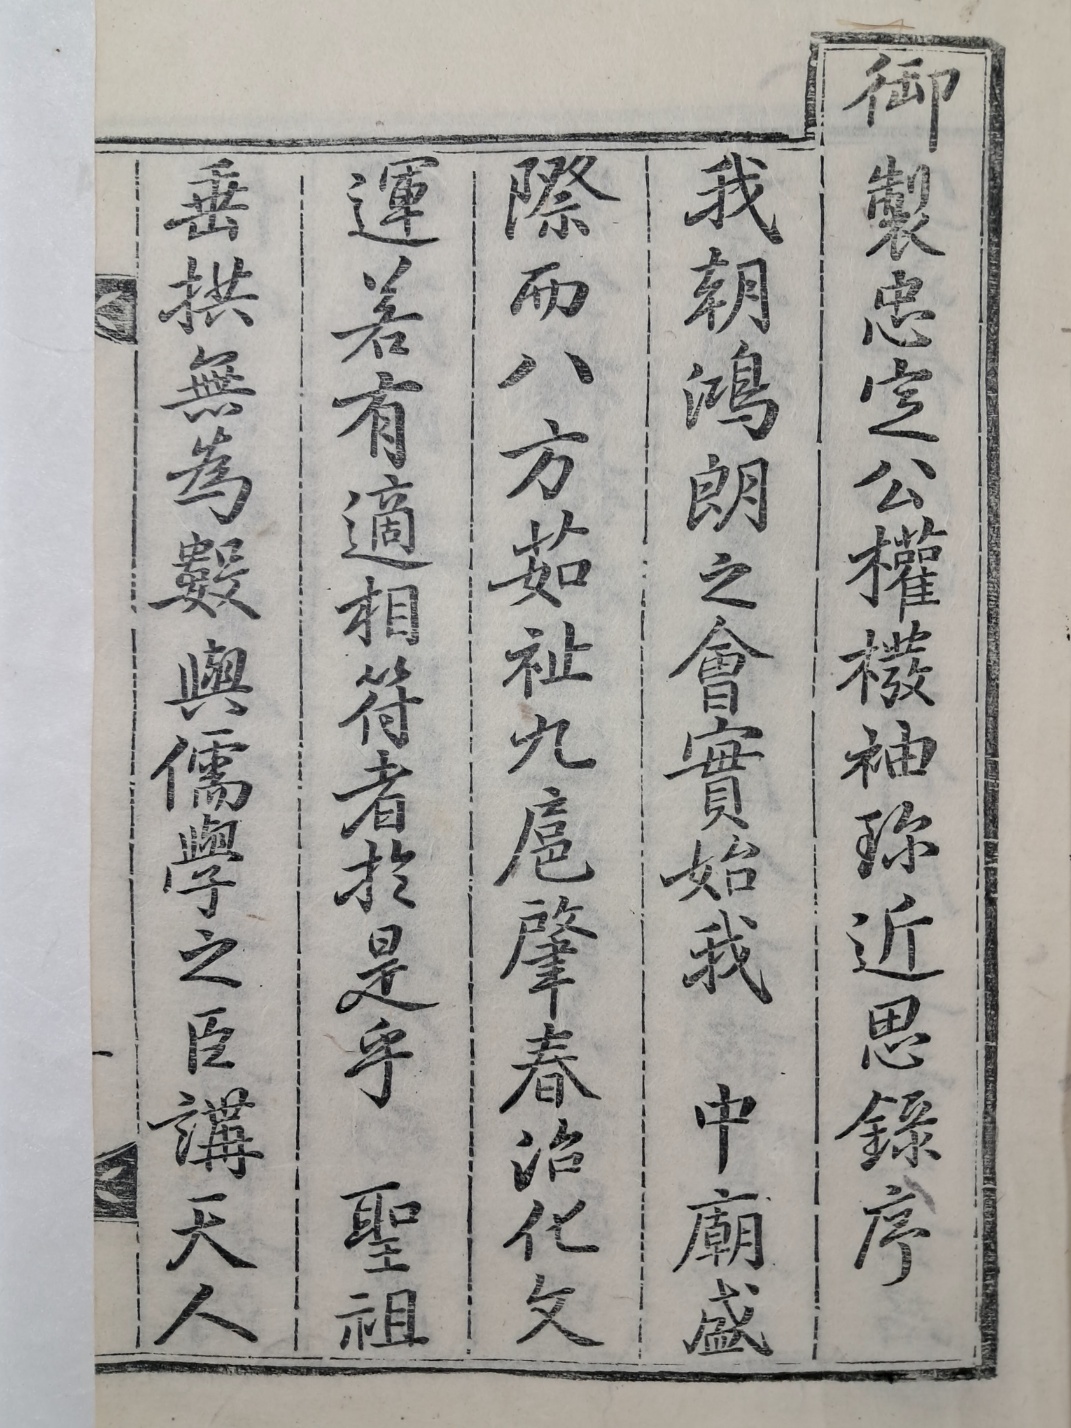 御製忠定公權橃袖珍近思錄序
我朝鴻朗之會實始我 中廟盛
際而八方茹祉九扈肇春治化文
運若有適相符者於是乎 聖祖
垂拱無爲數與儒學之臣講天人